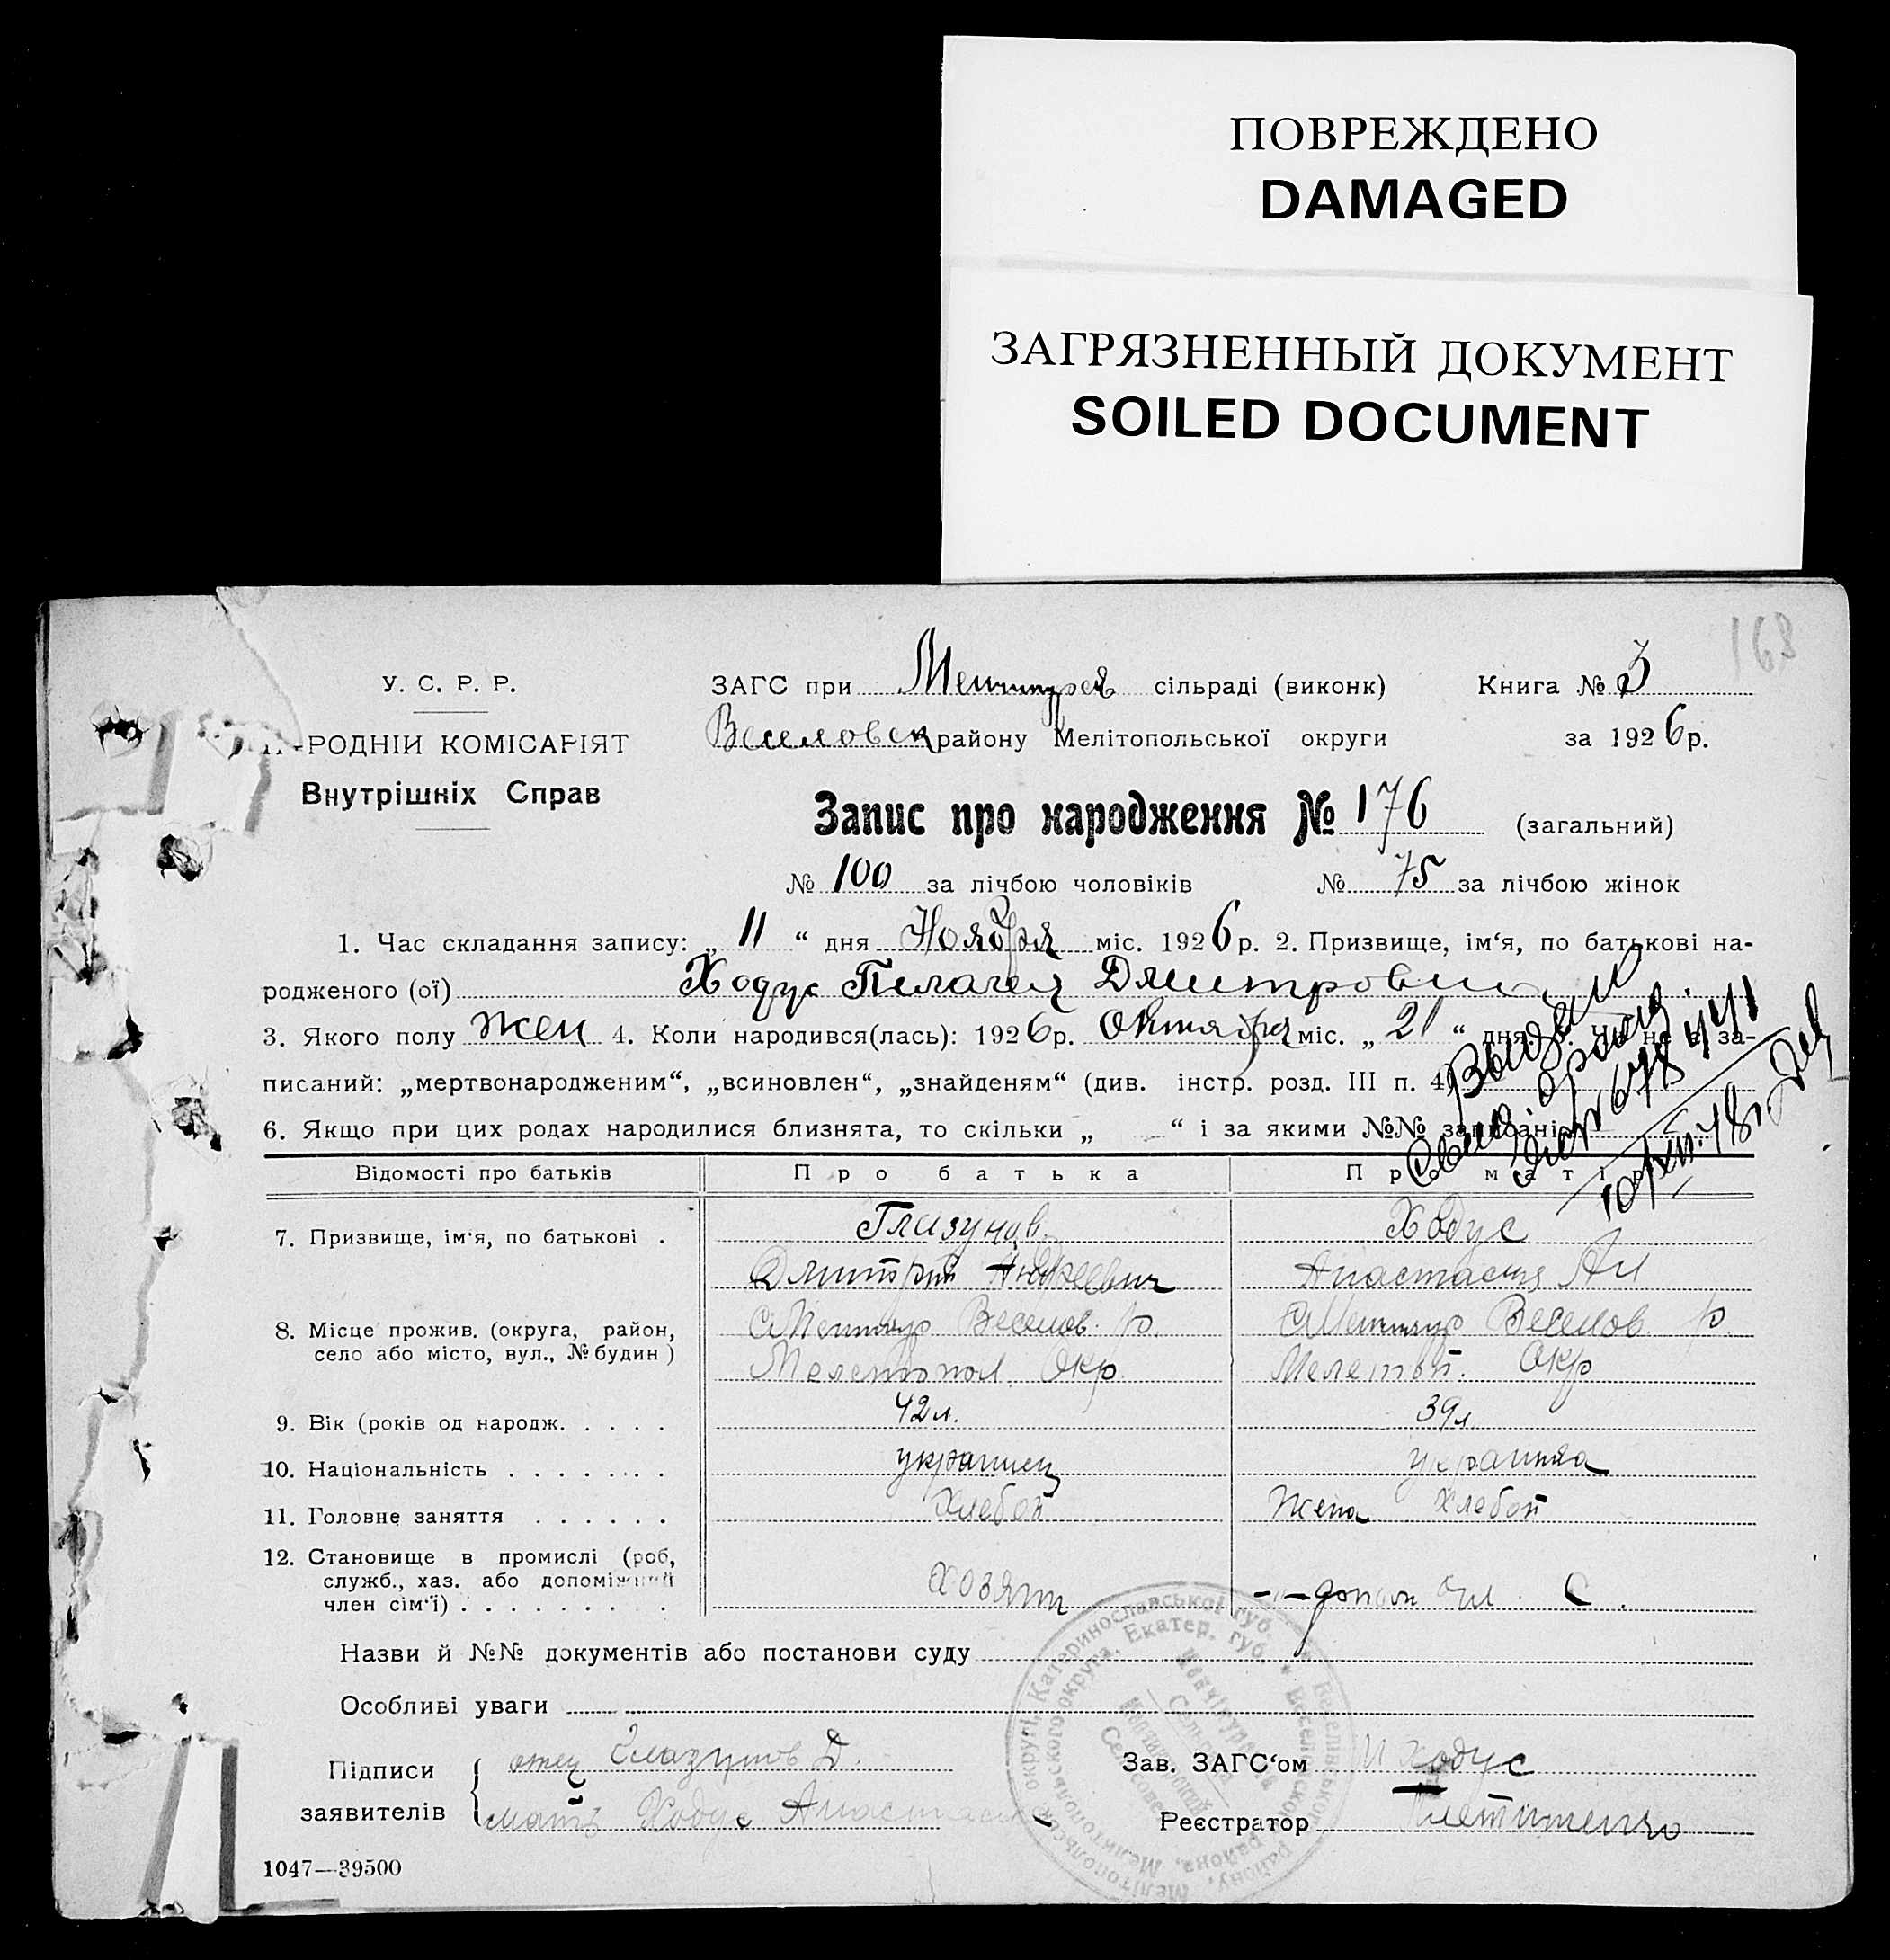 ПОВРЕЖДЕНО
DAMAGED
ЗАГРЯЗНЕННЫЙ ДОКУМЕНТ
SOILED DOCUMENT
168
У. С. Р. Р.
РОДНІЙ КОМІСАРІЯТ
Внутрішніх Справ
ЗАГС при Менчикур сільраді (виконк) Книга № 3
Веселовск району Мелітопольської округи за 1926 р.
Запис про народження № 176 (загальний)
№ 100 за лічбою чоловіків № 75 за лічбою жінок
1. Час складання запису: „ 11 “ дня Ноября міс. 1926 р. 2. Призвище, ім‘я, по батькові на-
родженого (ої) Ходус Пелагея Дмитровна
3. Якого полу жен 4. Коли народився(лась): 1926 р. Октября міс. „ 21 “ дня 5. Чи не є за-
писаний: „мертвонародженим“, „всиновлен“, „знайденям“ (див. інстр. розд. III п. 4)
6. Якщо при цих родах народилися близнята, то скільки „ “ і за якими №№ записані
Відомості про батьків Про батька Про матір
7. Призвище, ім‘я, по батькові . Глазунов Ходус
Дмитрий Андреевич Анастасия Ан
8. Місце прожив. (округа, район, Веселов. р. Веселов р.
село або місто, вул., № будин) Мелетопол. Окр. Мелетоп. Окр
9. Вік (років од народж. . . . . 42 л. 39 л.
10. Національність . . . . . . . украинец украинка
11. Головне заняття . . . . . . Хлебоп Жена Хлебоп
12. Становище в промислі (роб,
служб., хаз. або допоміжний Хозяин
член сім‘ї) . . . . . . . . .
Назви й №№ документів або постанови суду
Особливі уваги
Підписи отец Глазунов Д. Зав. ЗАГС‘ом И Ходус
заявителів мать Ходус Анастасия Реєстратор
1047—39500